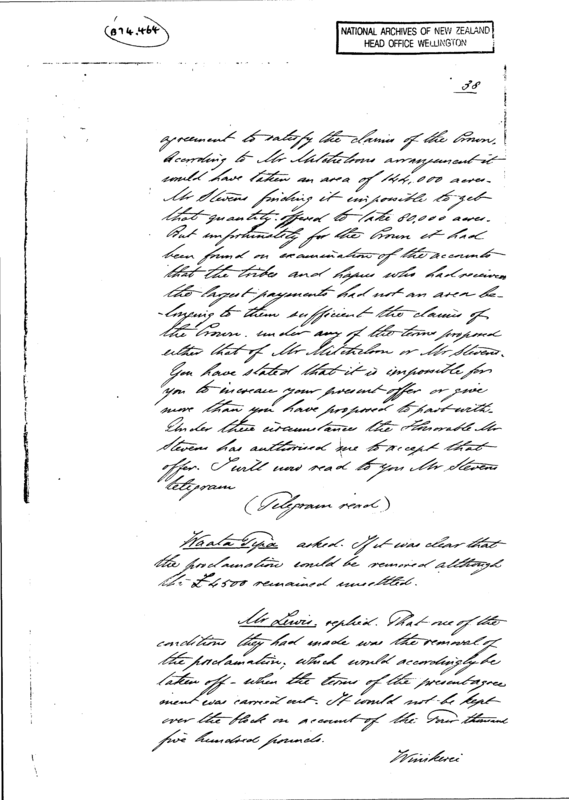 (B74.464)
NATIONAL ARCHIVES OF NEW ZEALAND
HEAD OFFICE WELLINGTON
38
agreement to satisfy the claims of the Crown.
According to Mr Mitchelsons arrangement it
would have taken an area of 144,000 acres.
Mr Stevens finding it impossible to get
that quantity. offered to take 80,000 acres.
But unfortunately for the Crown it had
been found on examination of the accounts
that the tribes and hapus who had received
the largest payments had not an area be-
-longing to them sufficient the claims of
the Crown. under any of the terms proposed
either that of Mr Mitchelson or Mr Stevens.
You have stated that it is impossible for
you to increase your present offer or give
more than you have proposed to part with.
Under these circumstances the Honorable Mr
Stevens has authorised me to accept that
offer. I will now read to you Mr Stevens
telegram
(Telegram read)
Waata Tipa asked. If it was clear that
the proclamation would be removed although
the £4500 remained unsettled.
Mr Lewis, replied. That one of the
conditions they had made was the removal of
the proclamation, which would accordingly be
taken off - when the terms of the present agree
ment was carried out. It would not be kept
over the block on account of the Four thousand
five hundred pounds.